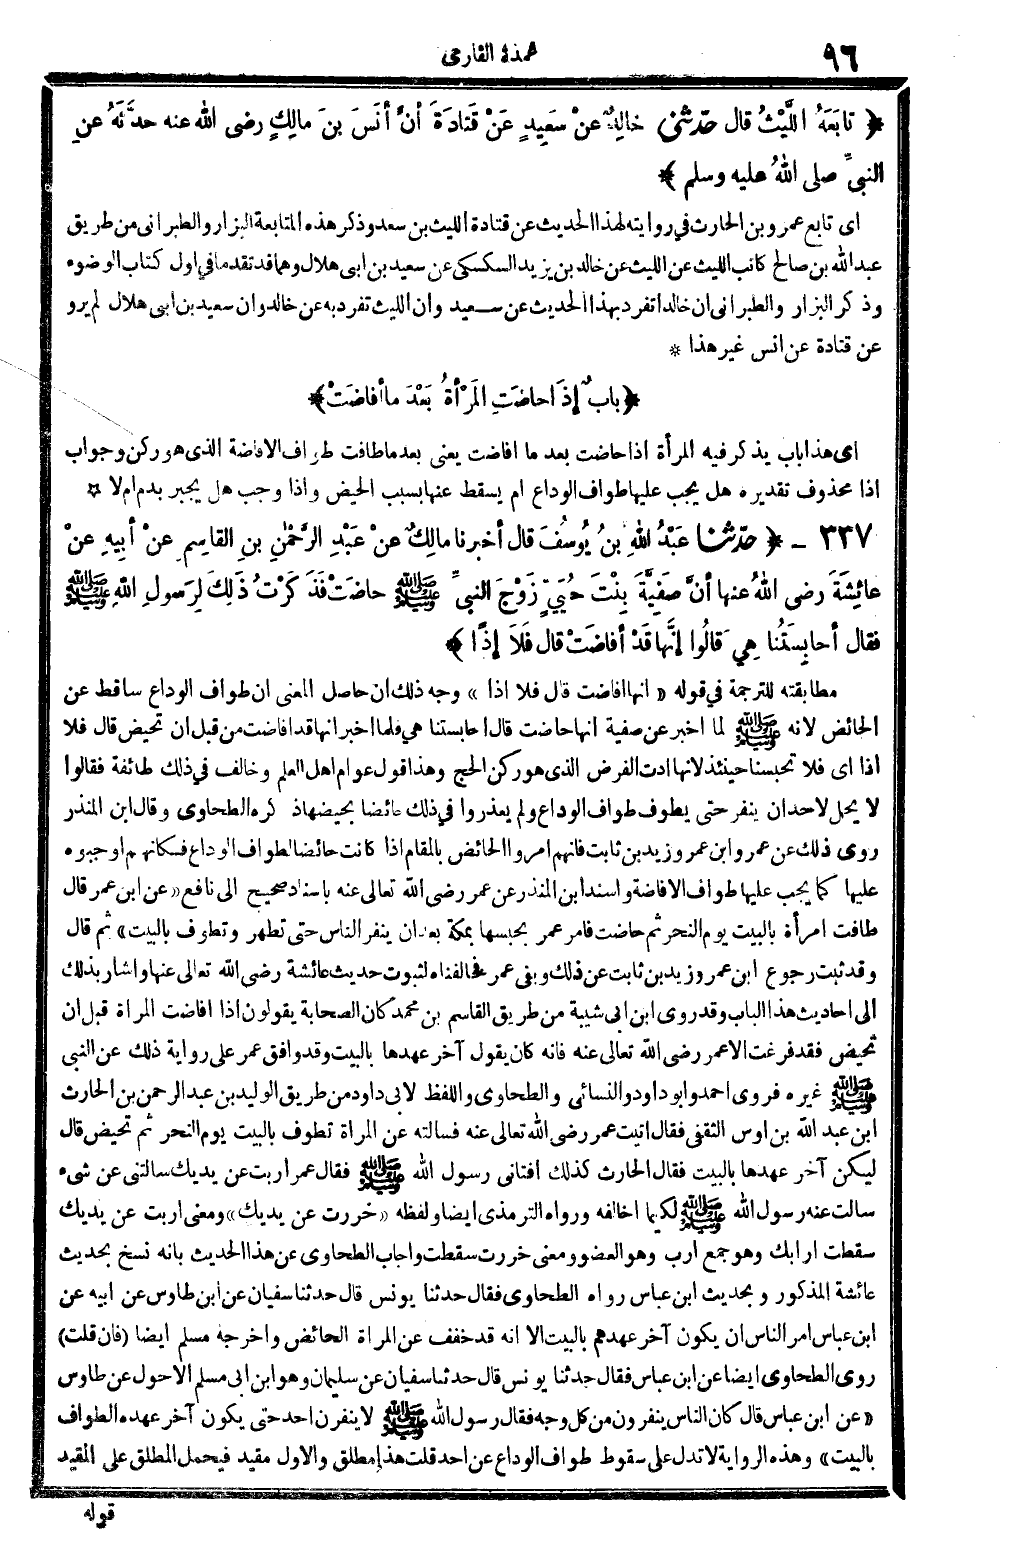 ٩٦
عمدة القارى
﴿ تابَعَهُ اللَّيْثُ قال حدّثنى خالِدٌ عنْ سَعِيدٍ عَنْ قَتادَةَ أنَّ أنَسَ بنَ مالِكٍ رضى الله عنه حدَّثَهُ عنِ
النبىِّ صلى اللهُ عليه وسلم ﴾
اى تابع عمرو بن الحارث فى روايته لهذا الحديث عن قتادة الليث بن سعد وذكر هذه المتابعة البزار والطبرانى من طريق
عبدالله بن صالح كاتب الليث عن الليث عن خالد بن يزيد السكسكى عن سعيد بن ابى هلال وهما قد تقدما فى اول كتاب الوضوء
وذكر البزار والطبرانى ان خالدا تفرد بهذا الحديث عن سعيد وأن الليث تفرد به عن خالد وان سعيد بن ابى هلال لم يرو
عن قتادة عن انس غير هذا *
﴿ بابٌ إذَا حاضَتِ المَرْأةُ بَعْدَ ما أفاضَتْ ﴾
اى هذا باب يذكر فيه المرأة اذا حاضت بعد ما افاضت يعنى بعد ما طافت طواف الافاضة الذى هو ركن وجواب
اذا محذوف تقديره هل يجب عليها طواف الوداع ام يسقط عنها بسبب الحيض واذا وجب هل يجبر بدم ام لا ☆
٣٣٧ – ﴿ حدّثنا عَبْدُ اللهِ بنُ يُوسُفَ قال أخبرنا مالِكٌ عنْ عَبْدِ الرَّحْمٰنِ بنِ القاسِمِ عنْ أبِيهِ عنْ
عائِشَةَ رضى اللهُ عنها أنَّ صَفِيَّةَ بِنْتَ حُيَيٍّ زَوْجَ النبىِّ ﷺ حاضَتْ فَذَكَرْتُ ذٰلِكَ لِرَسولِ اللهِ ﷺ
فقال أحابِسَتُنا هِيَ قالُوا إنَّها قَدْ أفاضَتْ قال فَلاَ إذًا ﴾
مطابقته للترجمة فى قوله «انها افاضت قال فلا اذا» وجه ذلك ان حاصل المعنى ان طواف الوداع ساقط عن
الحائض لانه ﷺ لما اخبر عن صفية انها حاضت قال احابستنا هى فلما اخبر انها قد افاضت من قبل ان تحيض قال فلا
اذا اى فلا تحبسنا حينئذ لانها ادت الفرض الذى هو ركن الحج وهذا قول عوام اهل العلم وخالف فى ذلك طائفة فقالوا
لا يحل لاحد ان ينفر حتى يطوف طواف الوداع ولم يعذروا فى ذلك حائضا بحيضها ذكره الطحاوى وقال ابن المنذر
روى ذلك عن عمر وابن عمر وزيد بن ثابت فانهم امروا الحائض بالمقام اذا كانت حائضا لطواف الوداع فكانهم اوجبوه
عليها كما يجب عليها طواف الافاضة واسند ابن المنذر عن عمر رضى الله تعالى عنه باسناد صحيح الى نافع «عن ابن عمر قال
طافت امرأة بالبيت يوم النحر ثم حاضت فامر عمر بحبسها بمكة بعد ان ينفر الناس حتى تطهر وتطوف بالبيت» ثم قال
وقد ثبت رجوع ابن عمر وزيد بن ثابت عن ذلك وبقى عمر فخالفناه لثبوت حديث عائشة رضى الله تعالى عنها واشار بذلك
الى احاديث هذا الباب وقد روى ابن ابى شيبة من طريق القاسم بن محمد كان الصحابة يقولون اذا افاضت المراة قبل ان
تحيض فقد فرغت الا عمر رضى الله تعالى عنه فانه كان يقول آخر عهدها بالبيت وقد وافق عمر على رواية ذلك عن النبى
ﷺ غيره فروى احمد وابو داود والنسائى والطحاوى واللفظ لابى داود من طريق الوليد بن عبد الرحمن بن الحارث
ابن عبد الله بن اوس الثقفى فقال اتيت عمر رضى الله تعالى عنه فسالته عن المراة تطوف بالبيت يوم النحر ثم تحيض قال
ليكن آخر عهدها بالبيت فقال الحارث كذلك افتانى رسول الله ﷺ فقال عمر اربت عن يديك سالتنى عن شىء
سالت عنه رسول الله ﷺ لكيما اخالفه ورواه الترمذى ايضا ولفظه «خررت عن يديك» ومعنى اربت عن يديك
سقطت ارابك وهو جمع أرب وهو العضو ومعنى خررت سقطت واجاب الطحاوى عن هذا الحديث بانه نسخ بحديث
عائشة المذكور وبحديث ابن عباس رواه الطحاوى فقال حدثنا يونس قال حدثنا سفيان عن ابن طاوس عن ابيه عن
ابن عباس امر الناس ان يكون آخر عهدهم بالبيت الا انه قد خفف عن المراة الحائض واخرجه مسلم ايضا (فان قلت)
روى الطحاوى ايضا عن ابن عباس فقال حدثنا يونس قال حدثنا سفيان عن سليمان وهو ابن ابى مسلم الاحول عن طاوس
«عن ابن عباس قال كان الناس ينفرون من كل وجه فقال رسول الله ﷺ لا ينفرن احد حتى يكون آخر عهده الطواف
بالبيت» وهذه الرواية لا تدل على سقوط طواف الوداع عن احد قلت هذا مطلق والاول مقيد فيحمل المطلق على المقيد
قوله